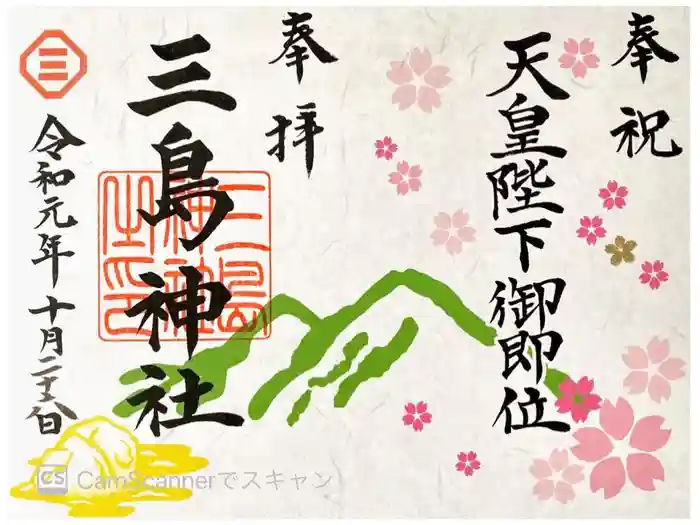 奉祝
天皇陛下御即位
奉拝
三島神社
三島神社之印
令和元年十月二十二日
三
CS CamScannerでスキャン